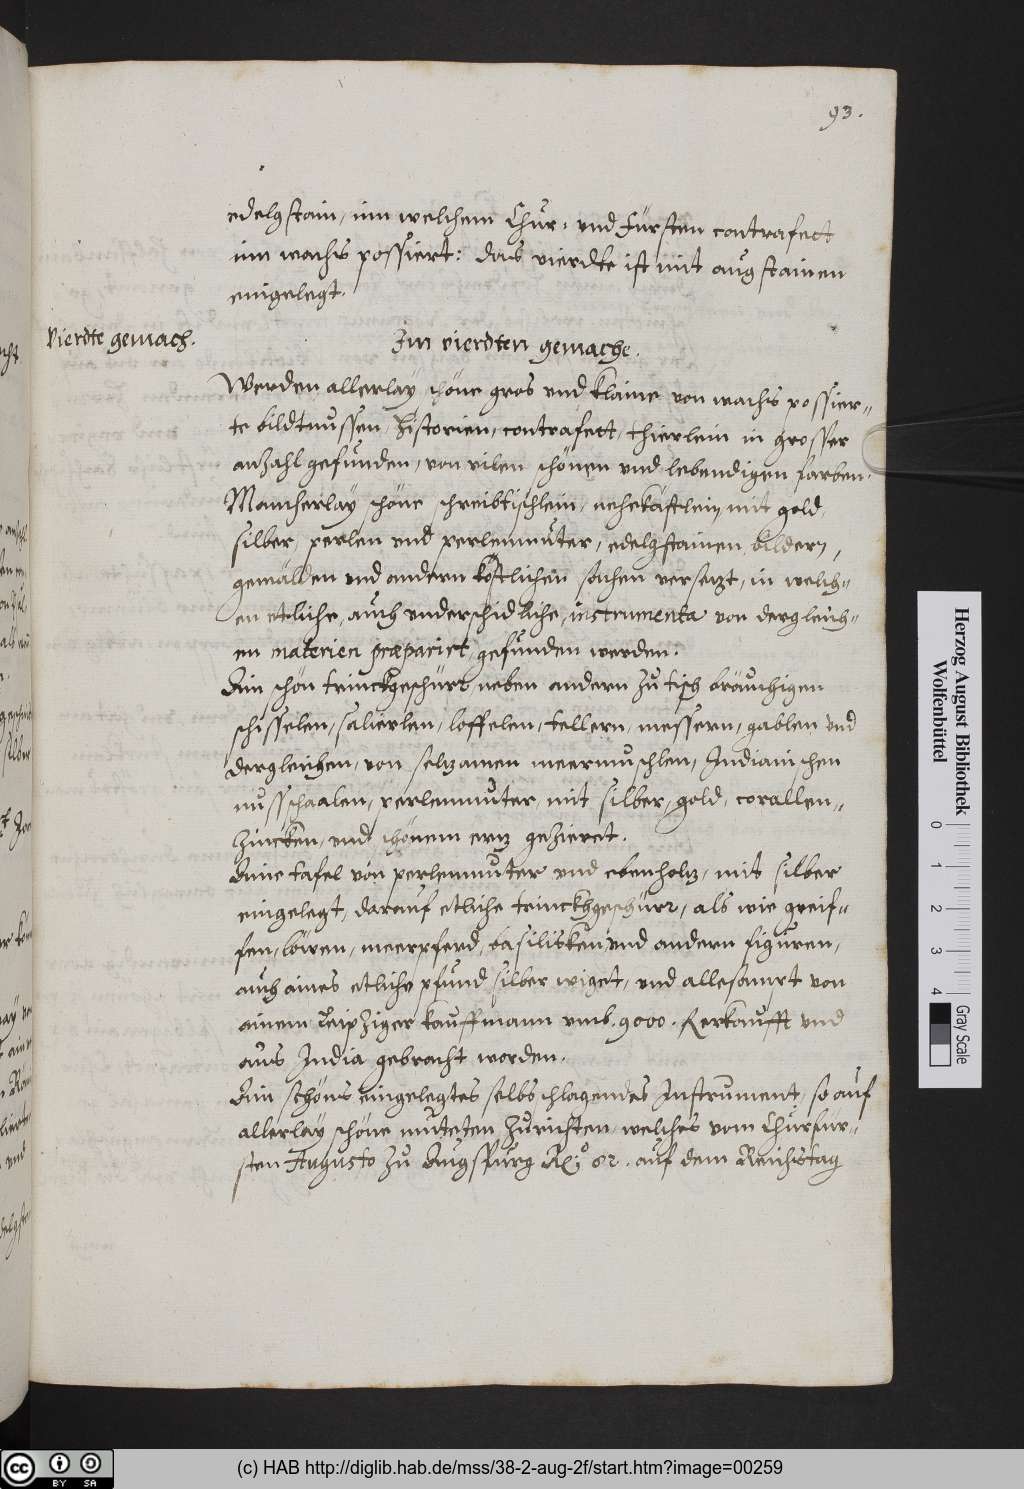 93.
edelgstain, inn welchem Chur- und Fürsten contrafect
inn wachs possiert: das vierdte ist mit augstainen
eingelegt.
Vierdte gemach.
Im vierdten gemache.
Werden allerlay schöne gros und klaine von wachs possier-
te bildtnussen, Historien, contrafect, thierlein in grosser
anzahl gefunden, von vilen schönen und lebendigen farben.
Mancherlay schöne schreibtischlein, nehekästlein, mit gold,
silber, perlen und perlenmuter, edelgstainen, bildern,
gemälden und andern köstlichen sachen versezt, in welch-
en etliche, auch underschidliche, instrumenta von dergleich-
en materien præparirt, gefunden werden.
Ain schön trinckhgeschürr neben andern zu tisch bräuchigen
schisselen, salierlen, löffelen, tellern, messern, gablen und
dergleichen, von selzamen meermuschlen, Indianischen
nusschaalen, perlenmuter, mit silber, gold, corallen-
zincken, und schönem ernz gezieret.
Aine tafel von perlenmuter und ebenholz, mit silber
eingelegt, darauf etliche trinckhgeschürr, als wie greif-
fen, löwen, meerpferd, basilisken und andern figuren,
auch aines etliche pfund silber wiget, und allesamt von
ainem Leipziger kauffmann umb. 9000. R erkaufft und
aus India gebracht worden.
Ain schöns eingelegtes selbsschlagendes Instrument, so auf
allerlay schöne muteten zurichten, welches vom Churfür-
sten Augusto zu Augspurg Ao. 82. auf dem Reichstag
Herzog August Bibliothek
Wolfenbüttel
0 1 2 3 4
Gray Scale
cc BY SA
(c) HAB http://diglib.hab.de/mss/38-2-aug-2f/start.htm?image=00259